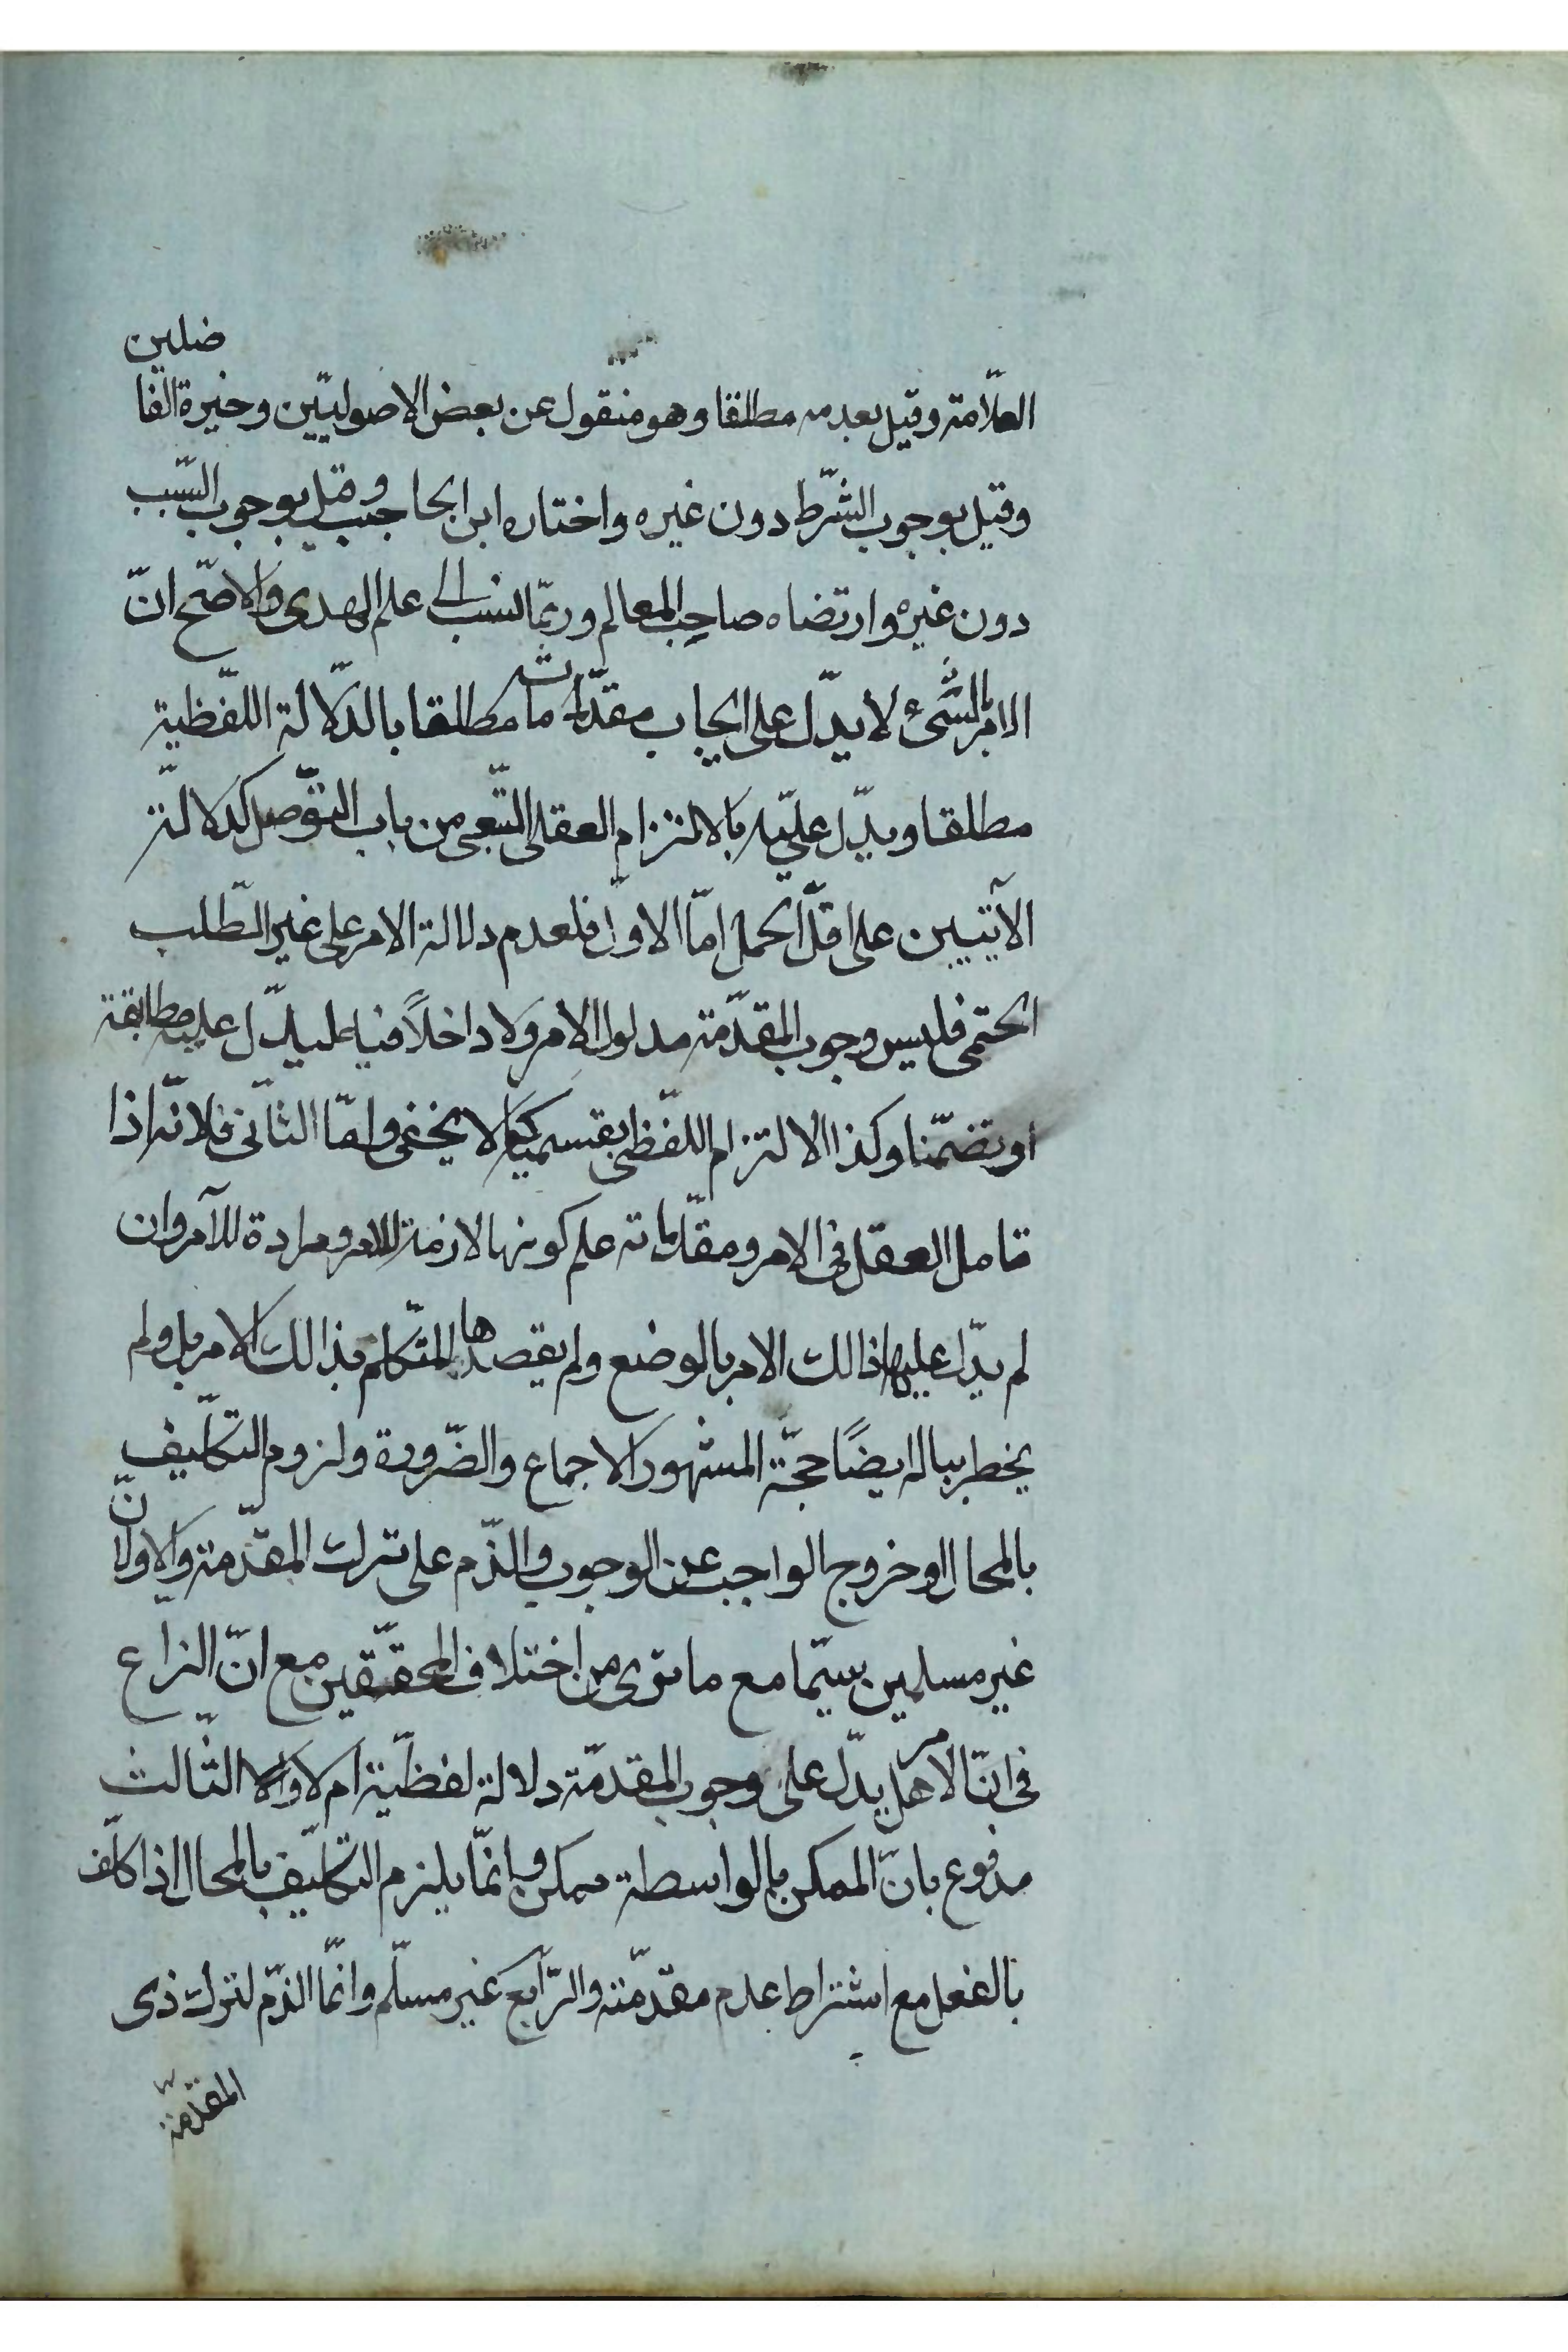 العلّامة وقيل بعدمه مطلقا وهو منقول عن بعض الاصوليّين وخيرة الفاضلين
وقيل بوجوب الشّرط دون غيره واختاره ابن الحاجب وقيل بوجوب السّبب
دون غيره وارتضاه صاحب المعالم وربّما نسب الى علم الهدى والاصّح انّ
الامر بالشّیء لا يدّل على ايجاب مقدّماته مطلقا بالدّلالة اللّفظية
مطلقا ويدّل عليه بالالتزام العقلى التّبعى من باب التوّصل كدلالة
الآيتين على اقلّ الحمل امّا الاوّل فلعدم دلالة الامر على غير الطّلب
الحتمى فليس وجوب المقدّمة مدلول الامر ولا داخلاً فيه ليدّل عليه مطابقة
او تضمّنا وكذا الالتزام اللّفظى بقسميه كما لا يخفى وامّا الثّانى فلانّه اذا
تامل العقل فى الامر ومقدّماته علم كونها لازمة للامر ومرادة للآمر وان
لم يدّل عليها ذالك الامر بالوضع ولم يقصدها المتّكلم بذالك الامر بل ولم
يخطر بباله ايضًا حجّة المشهور الاجماع والضّرورة ولزوم التكلّيف
بالمحال او خروج الواجب عن الوجوب والذّم على ترك المقدّمة والاوّلانّ
غير مسلمين سيّما مع ما ترى من اختلاف المحقّقين مع انّ النزاع
فى انّ الامر هل يدّل على وجوب المقدّمة دلالة لفظّية ام لا والثّالث
مدفوع بانّ الممكن بالواسطة ممكن وانّما يلزم التكلّيف بالمحال اذا كلّف
بالفعل مع اشتراط عدم مقدّمته والرّابع غير مسلّم وانّما الذّم لترك ذى
المقدّمة